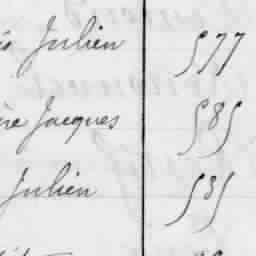 Julien 577
Jacques 585
Julien 585